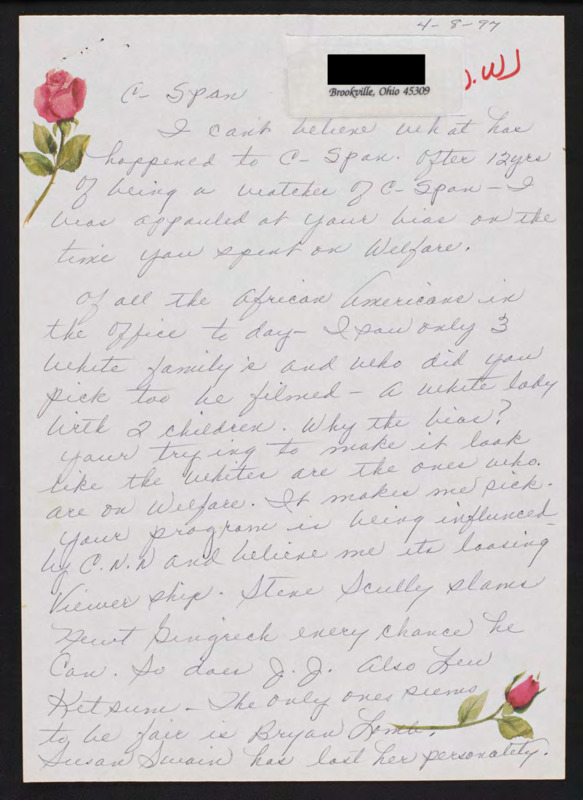 4-8-97
Brookville, Ohio 45309
J.W
C- Span
I can't believe what has
happened to C- Span. After 12yrs
of being a watcher of C- Span - I
was appauled at your bias on the
time you spent on Welfare.
Of all the African Americans in
the office to day - I saw only 3
white family's and who did you
pick too be filmed - a white lady
with 2 children. Why the bias?
your trying to make it look
like the whites are the ones who
are on Welfare. It makes me sick.
your program is being influnced
by C.N.N and believe me its loosing
Viewer ship. Steve Scully slams
Newt Gingrech every chance he
Can. So does J.J. Also Lew
Ketsum - The only ones seems
to be fair is Bryan Lomb.
Susan Swain has lost her personality.